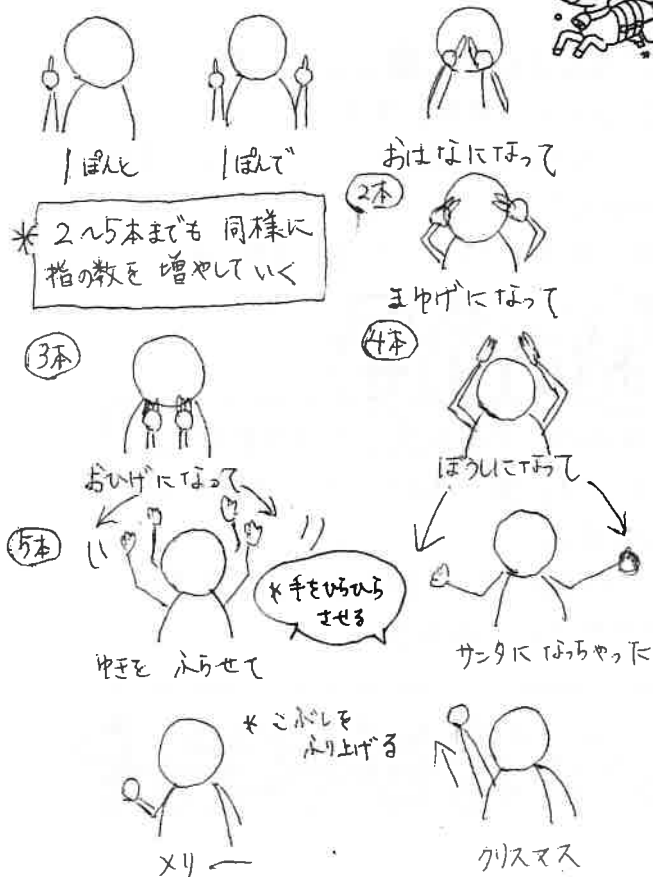 1ぽんと
1ぽんで
おはなになって
* 2~5本までも 同様に
指の数を 増やしていく
2本
まゆげになって
3本
おひげになって
4本
ぼうしになって
5本
* 手をひらひら
させる
ゆきを ふらせて
サンタに なっちゃった
* こぶしを
ふり上げる
メリー
クリスマス